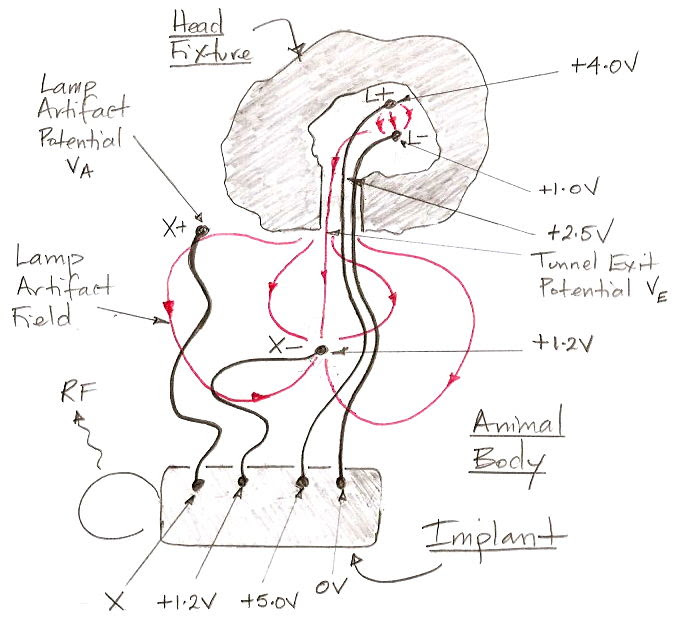 Head
Fixture
Lamp
Artifact
Potential
VA
+4.0V
L+
L-
+1.0V
X+
+2.5V
Tunnel Exit
Potential VE
Lamp
Artifact
Field
X-
+1.2V
RF
Animal
Body
Implant
X
+1.2V
+5.0V
0V